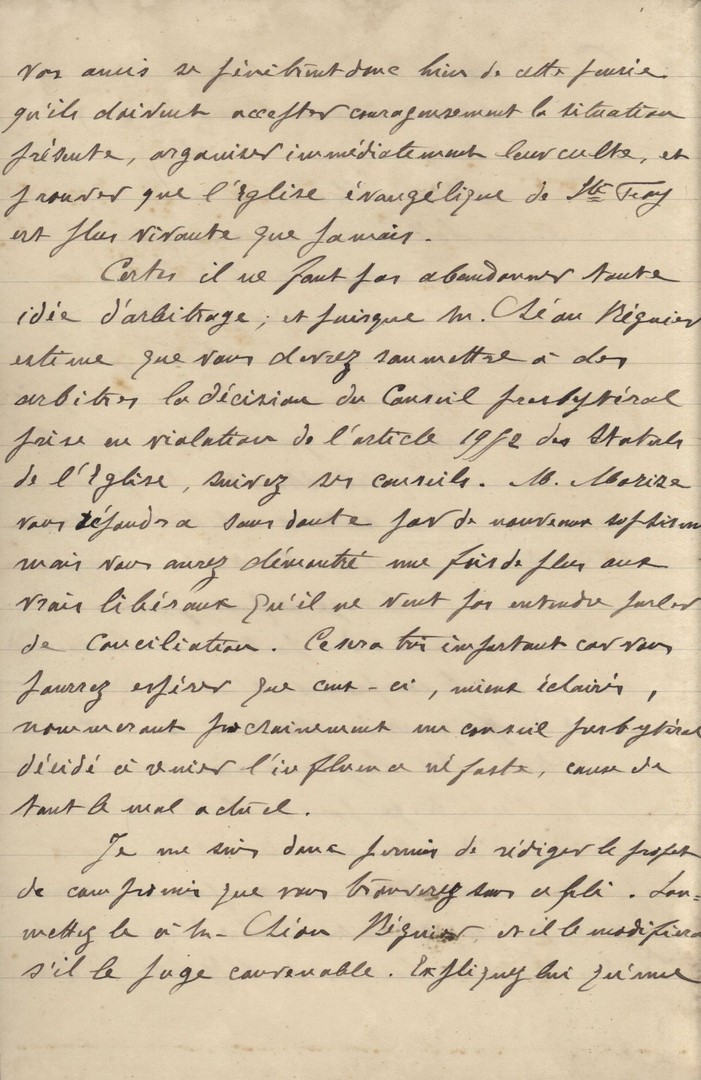 vos amis se pénètrent donc bien de cette pensée
qu'ils doivent accepter courageusement la situation
présente, organiser immédiatement leur culte, et
prouver que l'Eglise évangélique de Ste Foy
est plus vivante que jamais.
Certes il ne faut pas abandonner toute
idée d'arbitrage ; et puisque M. Léon Régnier
estime que vous devrez soumettre à des
arbitres la décision du Conseil presbytéral
prise en violation de l'article des Statuts
de l'Eglise, suivez ses conseils. M.
vous répondra sans doute par de nouveaux sophismes
mais vous aurez démontré une fois de plus aux
vrais libéraux qu'il ne veut pas entendre parler
de Conciliation. Ce sera très important car vous
pourrez espérer que ceux-ci, mieux éclairés,
nommeront prochainement un conseil presbytéral
décidé à renier l'influence néfaste, cause de
tout le mal actuel.
Je me suis donc permis de rédiger le projet
de compromis que vous trouverez sous ce pli. Sou=
mettez le à M. Léon Régnier et il le modifiera
s'il le juge convenable. Expliquez lui qu'une